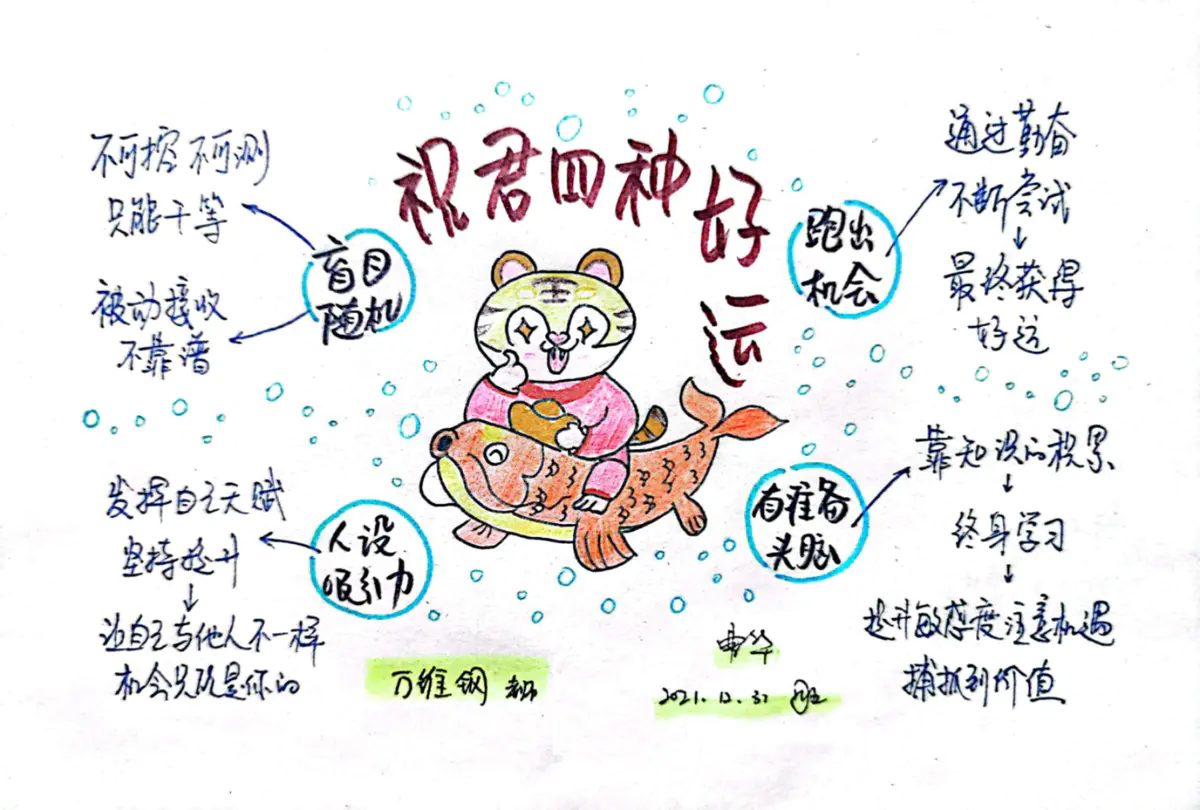 祝君四种好运
盲目
随机
不可控 不可测
只能干等
被动接收
不靠谱
跑出
机会
通过勤奋
不断尝试
最终获得
好运
有准备
头脑
靠知识的积累
终身学习
提升敏感度注意机遇
捕抓到价值
人设
吸引力
发挥自己天赋
坚持提升
让自己与他人不一样
机会只能是你的
万维钢 老师
2021.12.31